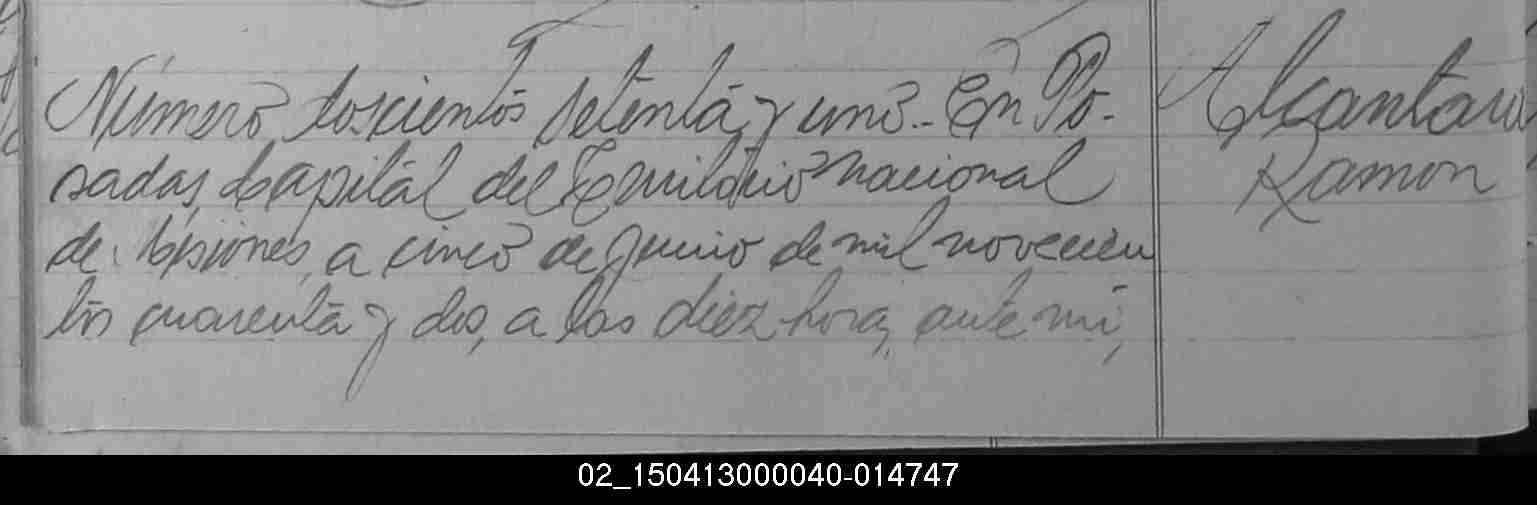 Número doscientos setenta y uno.- En Po-
sadas, Capital del Territorio nacional
de Misiones, a cinco de Junio de mil novecien
tos cuarenta y dos, a las diez hora, ante mí,
Alcantara
Ramon
02_150413000040-014747